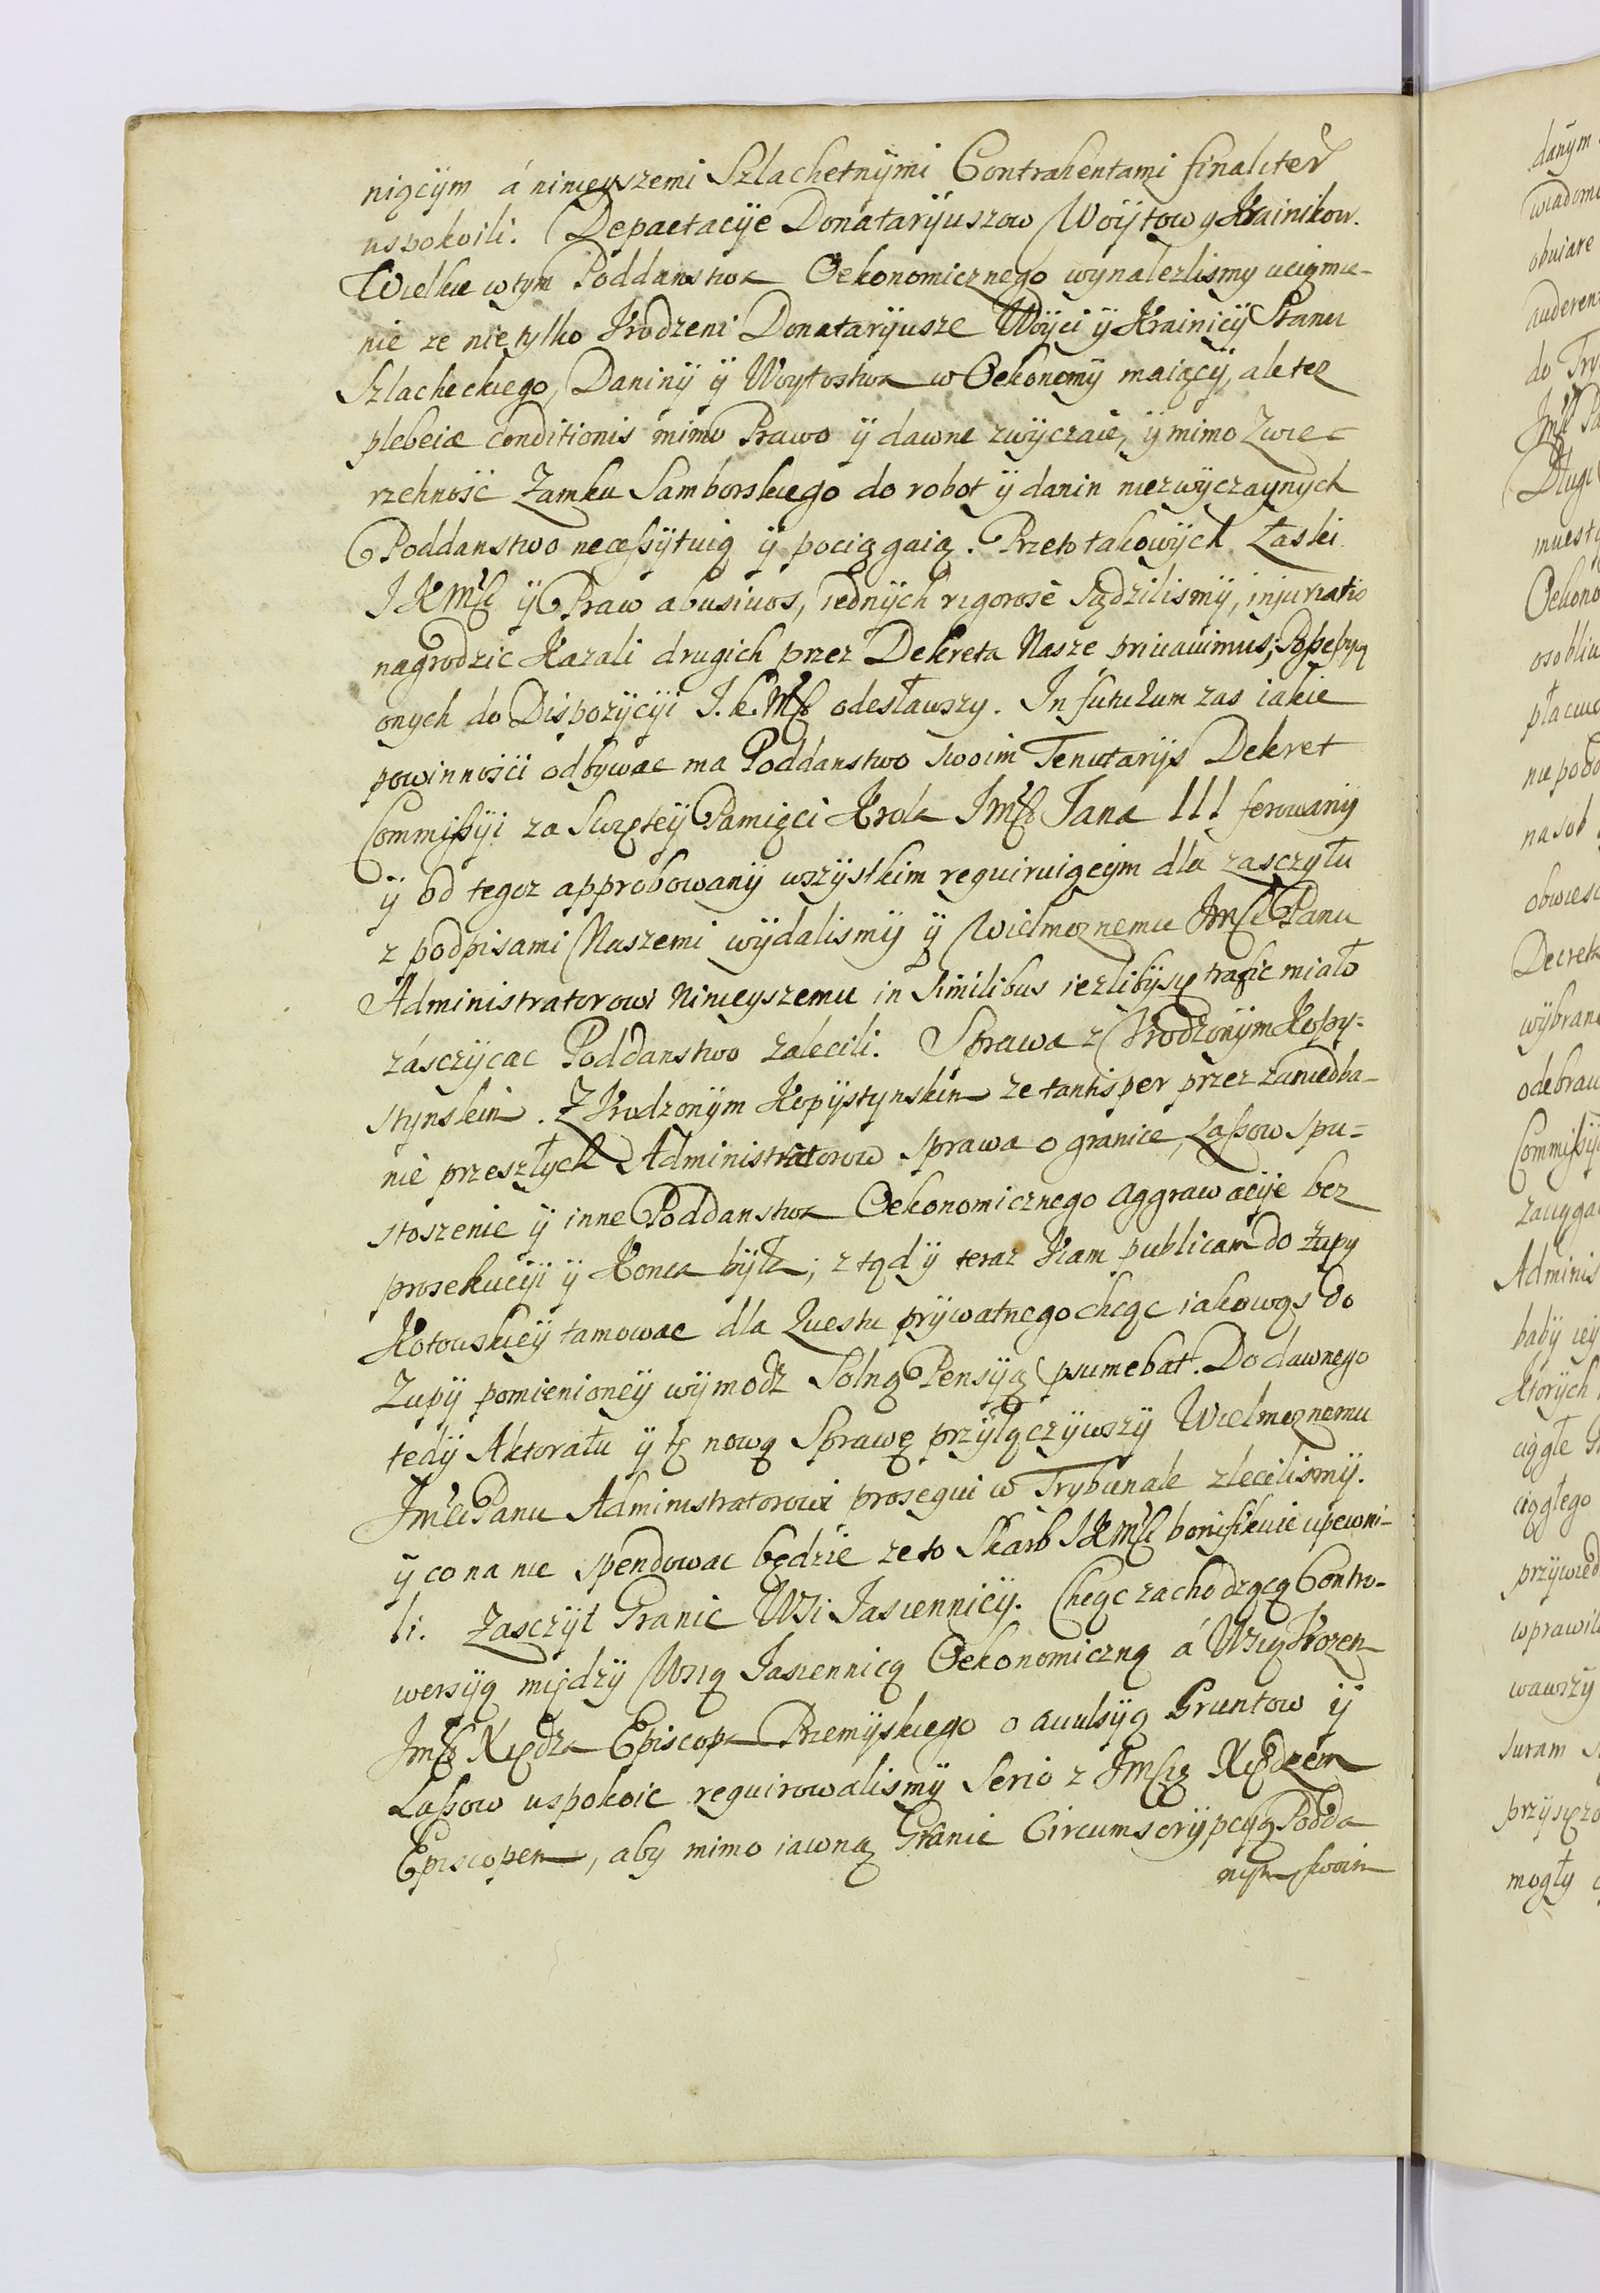 niącÿm á ninieyszemi Szlachetnÿmi Contrahentami finaliter
uspokoili. Depactacÿe Donatarÿuszow Woÿtow y Krainikow.
Wielkie w tym Poddanstwa Oekonomicznego wynalezlismy uciąmie-
nie ze nie tylko Urodzeni Donatarÿusze Woÿci ÿ Krainicÿ Stanu
Szlacheckiego, Daninÿ ÿ Woytostwa w Oekonomÿ maiącÿ, ale tez
plebeiæ conditionis mimo Prawo ÿ dawne zwÿczaie, ÿ mimo Zwie-
rzchność Zamku Samborskiego do robot ÿ danin niezwÿczaynych
Poddanstwo necessÿtuią ÿ pociągaią. Przeto takowÿch Łaski
J K Mśći ÿ Praw abusivos, iednÿch rigorosè sądzilismÿ, injuriatis
nagrodzic Kazali drugich przez Dekreta Nasze privavimus;
onych do Dispozÿcÿi J. k. Mści odesławszy. In futurum zas iakie
powinnośći odbywac ma Poddanstwo swoim Tenutarÿs Dekret
Commissÿi za Swiętey Pamięci Krola Jmści Jana III ferowanÿ
ÿ od tegoz approbowanÿ wszÿstkim requiruiącÿm dla zasczÿtu
z podpisami Naszemi wÿdalismÿ ÿ Wielmoznemu Jmści Panu
Administratorowi Ninieyszemu in Similibus iezlibÿ się trafic miało
zásczÿcac Poddanstwo zalecili. Sprawa z Urodzonÿm Kopy-
stynskim. Z Urodzonÿm Kopÿstynskim ze tantisper przez zaniedba-
nie przeszłych Administratorow sprawa o granice, Lassow spu-
stoszenie ÿ inne Poddanstwa Oekonomicznego aggrawacÿe bez
prosekucÿi ÿ Konca bÿła; z tąd ÿ teraz Viam publicam do zupy
Kotowskieÿ tamowac dla Questu prÿwatnego chcąc iakowąs do
Zupÿ pomienioneÿ wÿmodz Solną Pensÿą psumebat. Do dawnego
tedÿ Aktoratu ÿ tę nową Sprawę przÿłączÿwszÿ Wielmoznemu
Jmći Panu Administratorowi prosequi w Trybunale zlecilismÿ.
ÿ co na nie spendowac będzie ze to Skarb J K Mści bonifikuie upewni-
li. Zasczÿt Granic Wsi Jasiennicÿ. Chcąc zachodzącą Contro-
wersÿą międzÿ Wsią Jasiennicą Oekonomiczną á Wsią
Jmści Xiędza Episcopa Przemÿskiego o avulsÿą Gruntow ÿ
Lassow uspokoic requirowalismÿ serio z Jmścią Xiędzem
Episcopem, aby mimo iawną Granic Circumscrÿpcÿą Podda
nym swoim
danÿm
wiadom
obviare
auderen
do Try
Jmći Pa
Długi
muest
Oekono
osobliw
płacic
nie podo
na sob
obwiesc
Decreta
wÿbran
odebraw
Commissÿ
Adminis
babÿ iey
Ktorÿch
ciągłe G
ciągłego
przÿwied
wprawil
wawszÿ
suram
przÿsięz
mogłÿ